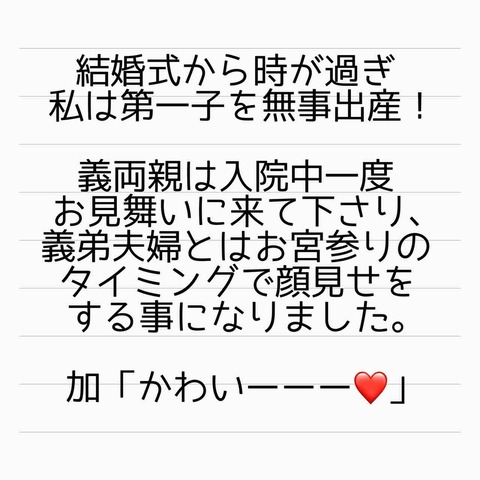 結婚式から時が過ぎ
私は第一子を無事出産！
義両親は入院中一度
お見舞いに来て下さり、
義弟夫婦とはお宮参りの
タイミングで顔見せを
する事になりました。
加「かわいーーー❤️」